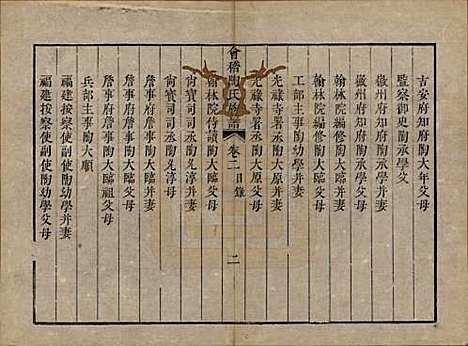 吉安府知府陶大年父母
監察御史陶承學父
徽州府知府陶承學父母
徽州府知府陶承學并妻
翰林院編修陶大臨父母
翰林院編修陶大臨并妻
工部主事陶幼學父母
光祿寺署丞陶大原父母
光祿寺署丞陶大原并妻
會稽陶氏族譜
卷二
目錄
二
翰林院侍讀陶大臨父母
尚寶司司丞陶允淳并妻
尚寶司司丞陶允淳母
詹事府詹事陶大臨并妻
詹事府詹事陶大臨父母
詹事府詹事陶大臨祖父母
兵部主事陶大順
福建按察使副使陶幼學并妻
福建按察使副使陶幼學父母